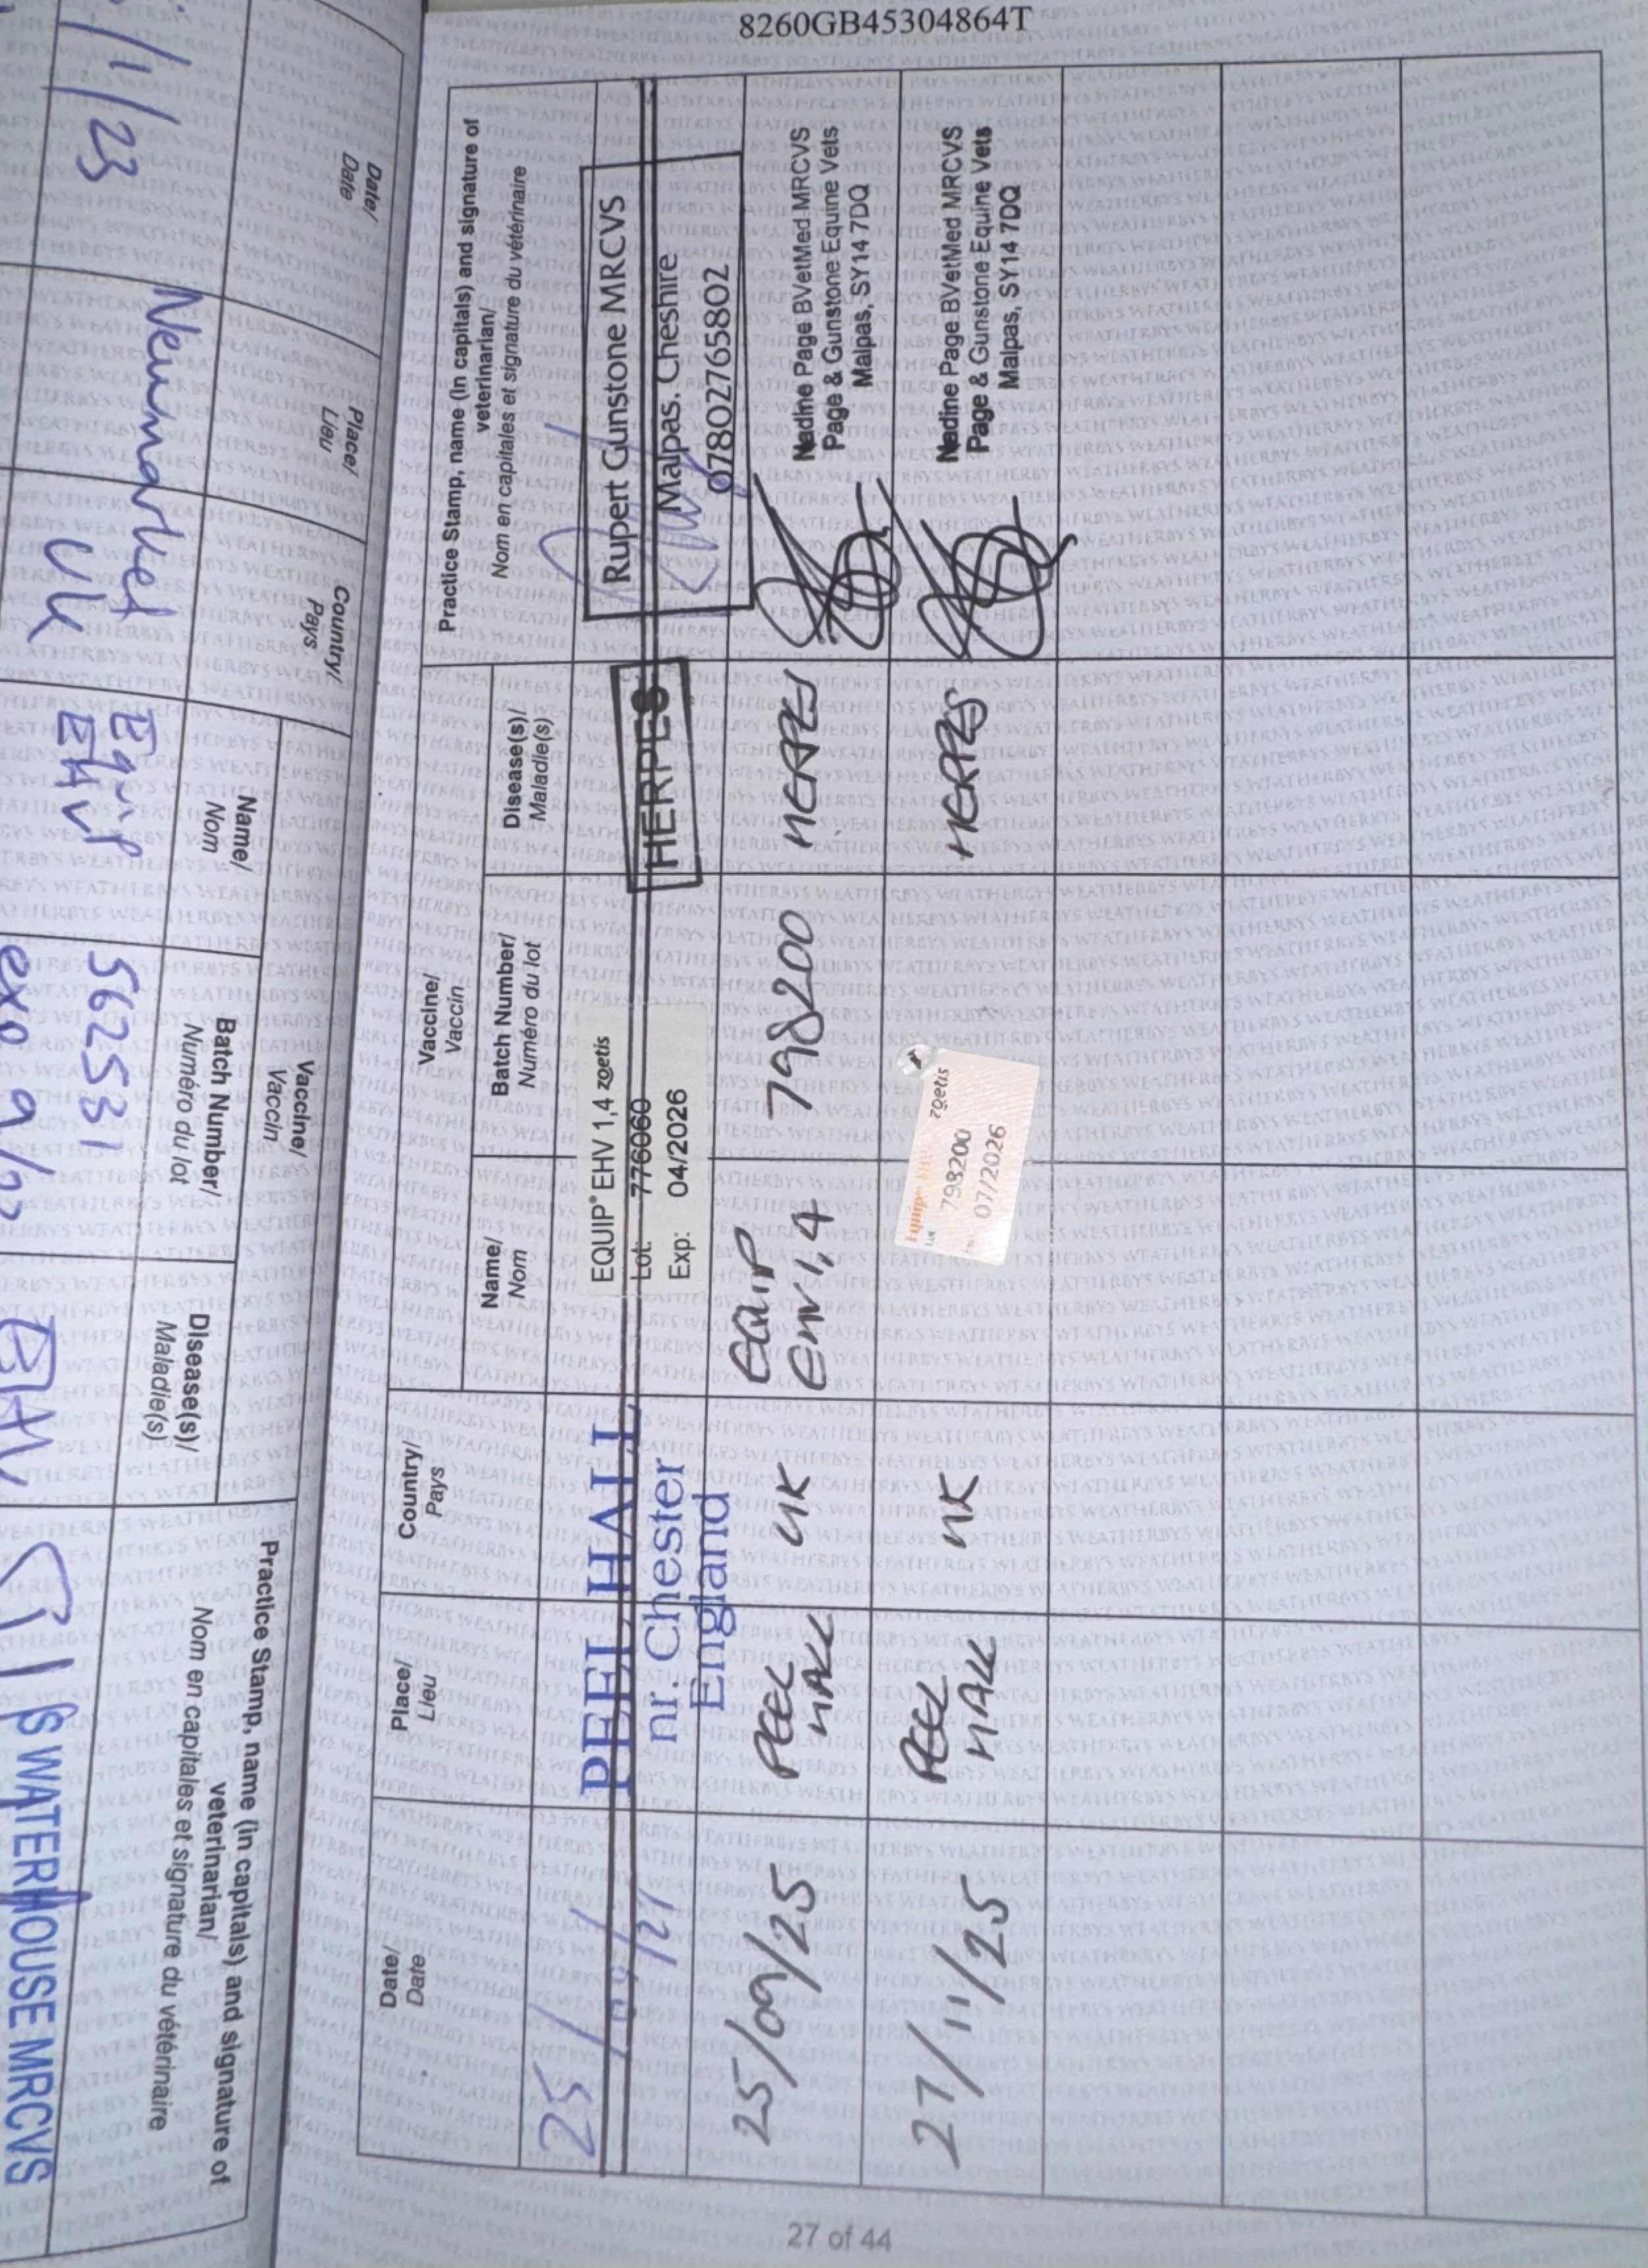 8260GB45304864T
Date/
Date
Place/
Lieu
Country/
Pays
Vaccine/
Vaccin
Name/
Nom
Batch Number/
Numéro du lot
Disease(s)/
Maladie(s)
Practice Stamp, name (in capitals) and signature of
veterinarian/
Nom en capitales et signature du vétérinaire
25/09/24
PEEL HALL
nr. Chester
England
EQUIP® EHV 1,4 zoetis
Lot: 776060
Exp: 04/2026
HERPES
Rupert Gunstone MRCVS
Malpas, Cheshire
07802765802
25/09/25
PEEL
HALL
UK
EQUIP
EHV 1,4
798200
HERPES
Nadine Page BVetMed MRCVS
Page & Gunstone Equine Vets
Malpas, SY14 7DQ
27/11/25
PEEL
HALL
UK
Equip EHV
zoetis
798200
07/2026
HERPES
Nadine Page BVetMed MRCVS
Page & Gunstone Equine Vets
Malpas, SY14 7DQ
27 of 44
Date/
Date
Place/
Lieu
Country/
Pays
Vaccine/
Vaccin
Name/
Nom
Batch Number/
Numéro du lot
Disease(s)/
Maladie(s)
Practice Stamp, name (in capitals) and signature of
veterinarian/
Nom en capitales et signature du vétérinaire
/1/23
Newmarket
UK
Equip
EHV
562531
exp
S WATERHOUSE MRCVS